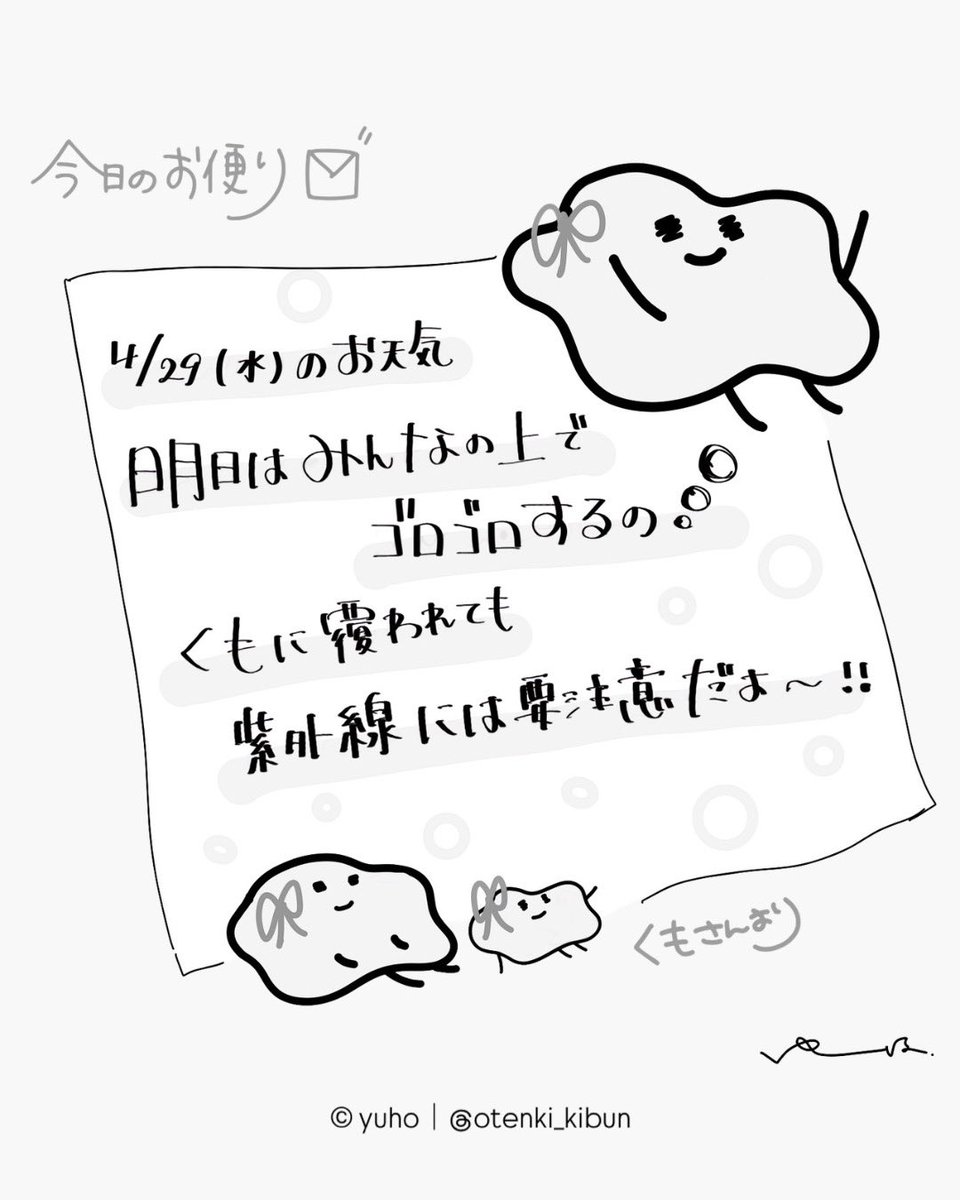 今日のお便り
4/29(水)のお天気
明日はみんなの上で
ゴロゴロするの
くもに覆われても
紫外線には要注意だよ〜!!
くもさんより
© yuho | @otenki_kibun